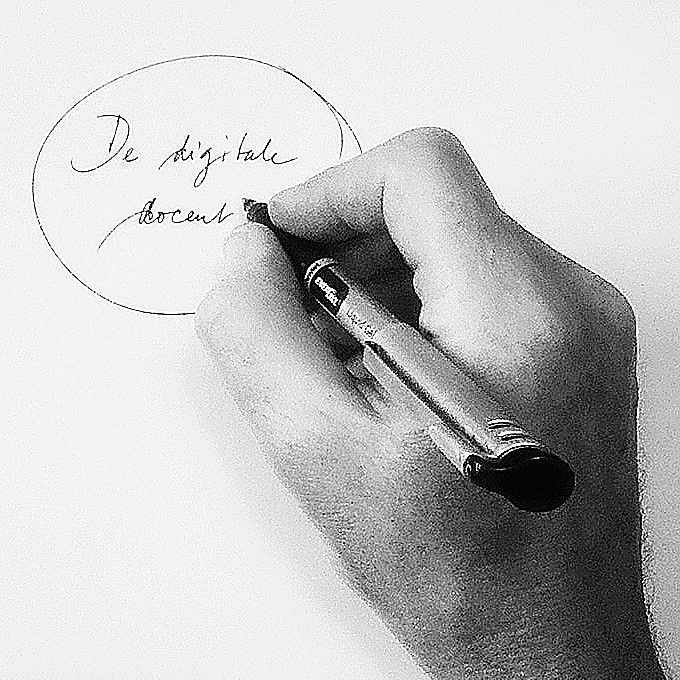 De digitale
docent